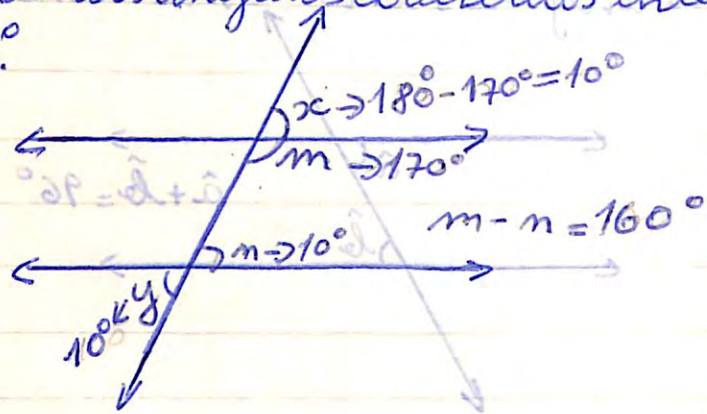 x→180°-170°=10°
m→170°
m-n=160°
n→10°
10°←y
â+b̂=96°